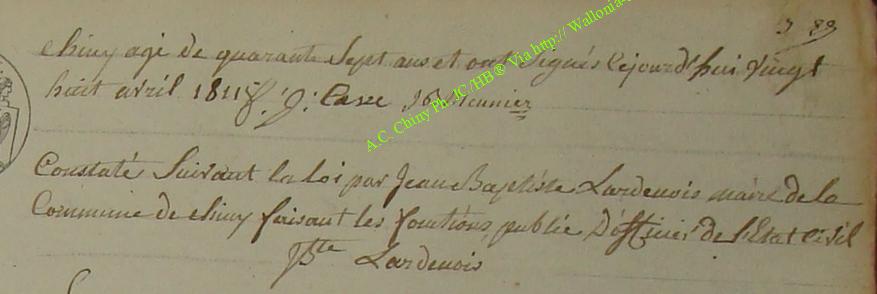 389
chiny agé de quarante Sept ans et ont Signés cejourd'hui vingt
huit avril 1811 J: Casse JB Meunier
A.C. Chiny Ph JC/HB® Via http:// Wallonia-
Constaté Suivant la loi par Jean Baptiste Lardenois maire de la
Commune de chiny faisant les fonctions publie D'officier de l'Etat Civil
JBte Lardenois